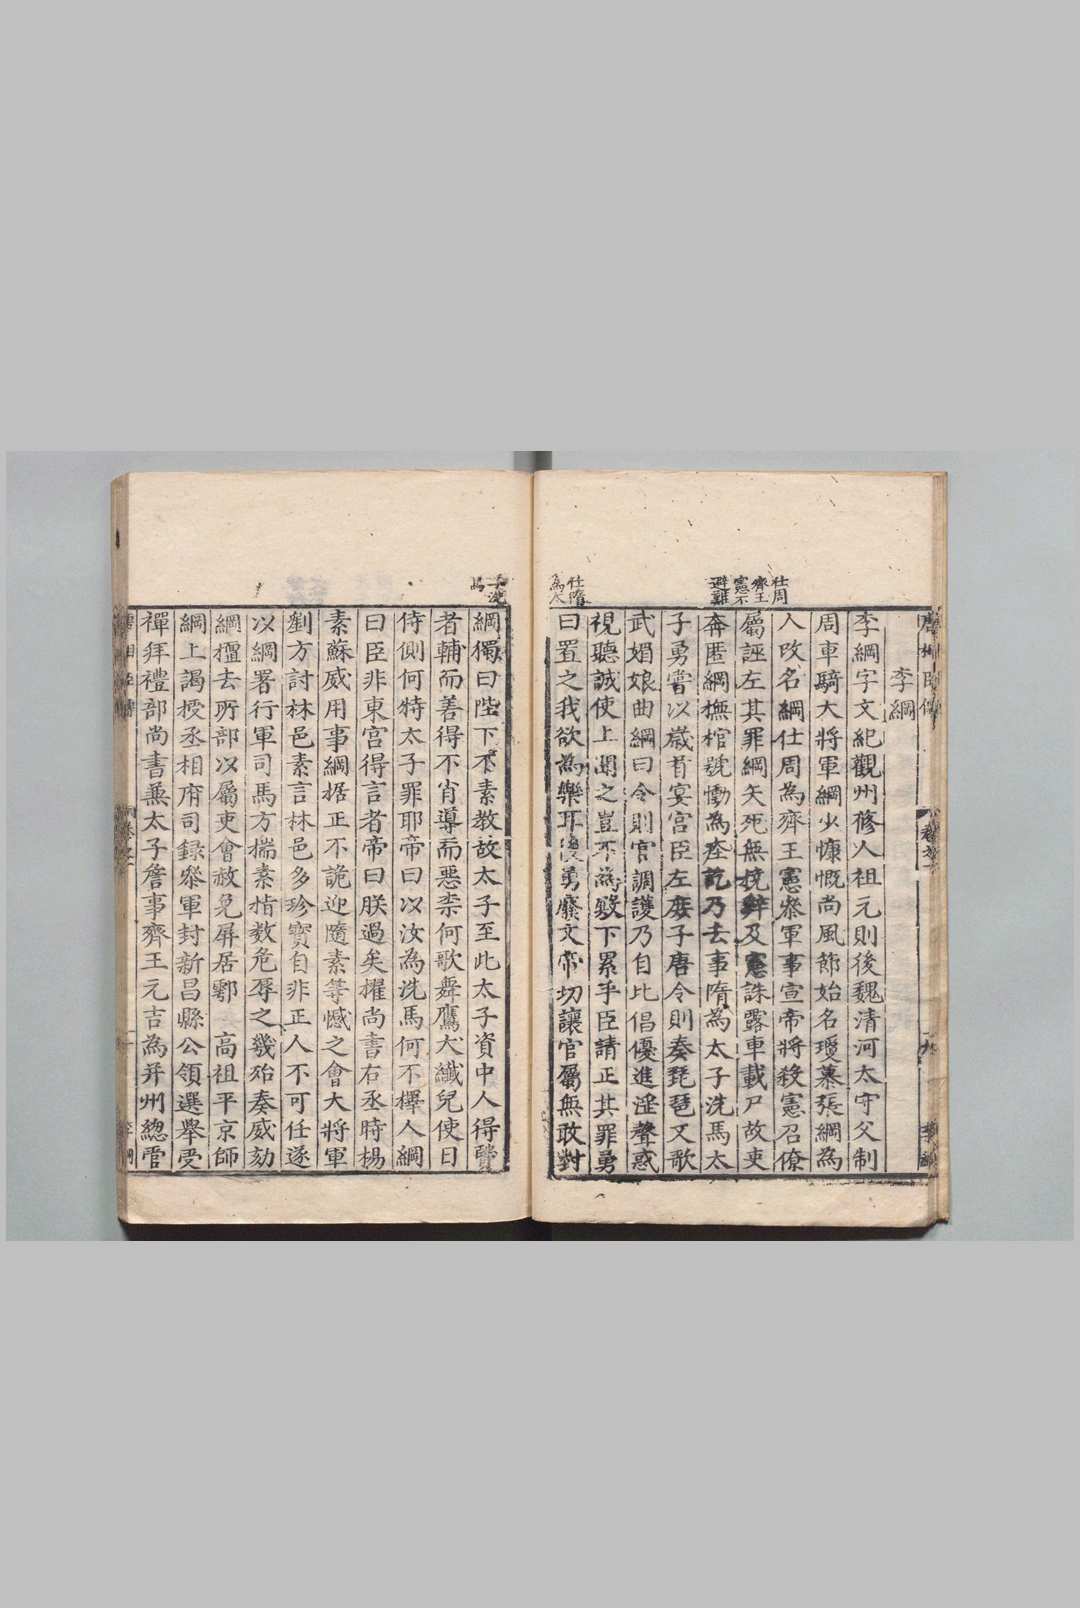 李綱
李綱字文紀觀州蓨人祖元則後魏清河太守父制
周車騎大將軍綱少慷慨尚風節始名瑗慕張綱為
人改名綱仕周為齊王憲叅軍事宣帝將殺憲召僚
屬誣左其罪綱矢死無撓辭及憲誅露車載尸故吏
奔匿綱撫棺號慟為瘞訖乃去事隋為太子洗馬太
子勇嘗以歲首宴宮臣左庶子唐令則奏琵琶又歌
武媚娘曲綱曰令則官調護乃自比倡優進淫聲惑
視聽誠使上聞之豈不為殿下累乎臣請正其罪勇
曰置之我欲為樂耳後勇廢文帝切讓官屬無敢對
仕周
齊王
憲不
避難
仕隋
為太
綱獨曰陛下不素教故太子至此太子資中人得賢
者輔而善得不肖導而惡柰何歌舞鷹犬纖兒使日
侍側何特太子罪耶帝曰以汝為洗馬何不擇人綱
曰臣非東宮得言者帝曰朕過矣擢尚書右丞時楊
素蘇威用事綱據正不詭迎隨素等憾之會大將軍
劉方討林邑素言林邑多珍寶自非正人不可任遂
以綱署行軍司馬方揣素指數危辱之幾殆奏威劾
綱擅去所部以屬吏會赦免屏居鄠　高祖平京師
綱上謁授丞相府司錄叅軍封新昌縣公領選舉受
禪拜禮部尚書兼太子詹事齊王元吉為并州總管
子洗
馬